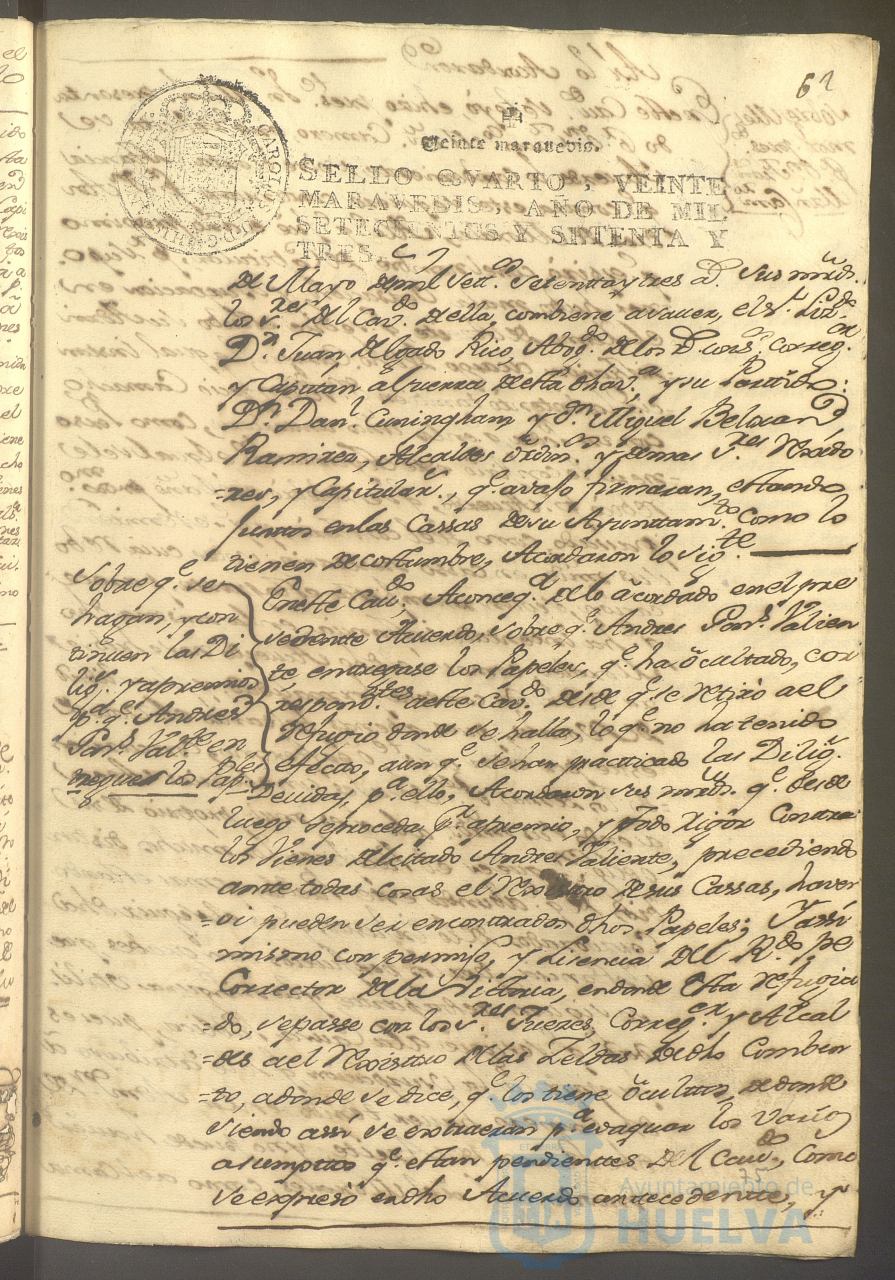 62
Veinte maravedis.
SELLO QVARTO, VEINTE
MARAVEDIS, AÑO DE MIL
SETECIENTOS Y SETENTA Y
TRES.
de Mayo de mil Sett.os Setenta y tres a.s Sus mrds.
los S.res del Cav.do de ella, combiene a saver, el S.r Liz.do
D.n Juan Delgado Rico, Abog.do de los R.s Cons.s Correg.or
y Capitan a Guerra de esta dha v.a y su Partido:
D.n Dan.l Cuningham, y D.n Miguel Beltran
Ramirez, Alcaldes Ordin.os y demas S.res Rexido
=res, y Capitular.s, q.e avajo firmaran, estando
juntos en las Cassas de su Ayuntam.to como lo
tienen de costumbre, Acordaron lo sig.te
Sobre q.e se
hagan, y con
tinuen las Di
lig.s y apremios
p.a q.e Andres
Pon.s Val.te en
tregue los Pap.les
En este Cav.do, A conseq.a de lo acordado en el pre
sedente Acuerdo, sobre q.e Andres Pon.s Valien
te, entregase los Papeles, q.e ha ocultado, cor
respond.tes a este Cav.do desde q.e se retiró a el
refugio donde se halla, lo q.e no ha tenido
efecto, aunq.e se han practicado las Dilig.s
Devidas p.a ello, Acordaron sus mrds. q.e desde
luego se proceda p.r apremio, y todo rigor contra
los Vienes del citado Andres Valiente, precediendo
ante todas cosas el Rexistro de sus Cassas, haver
=si pueden ser encontrados dhos Papeles; Y assi
mismo con permiso, y Licencia del R.do Pe
Corrector de la Victoria, en donde esta refugia
=do, se passe con los S.res Jueces, Correg.or y Alcal
=des a el Rexistro de las Zeldas de dho Comben
=to, adonde se dice, q.e los tiene ocultos, de donde
siendo assi se extraeran p.a evaquar los varios
asumptos q.e estan pendienttes del Cav.do, como
se expresó en dho Acuerdo antecedente, y
Ayuntamiento de
HUELVA